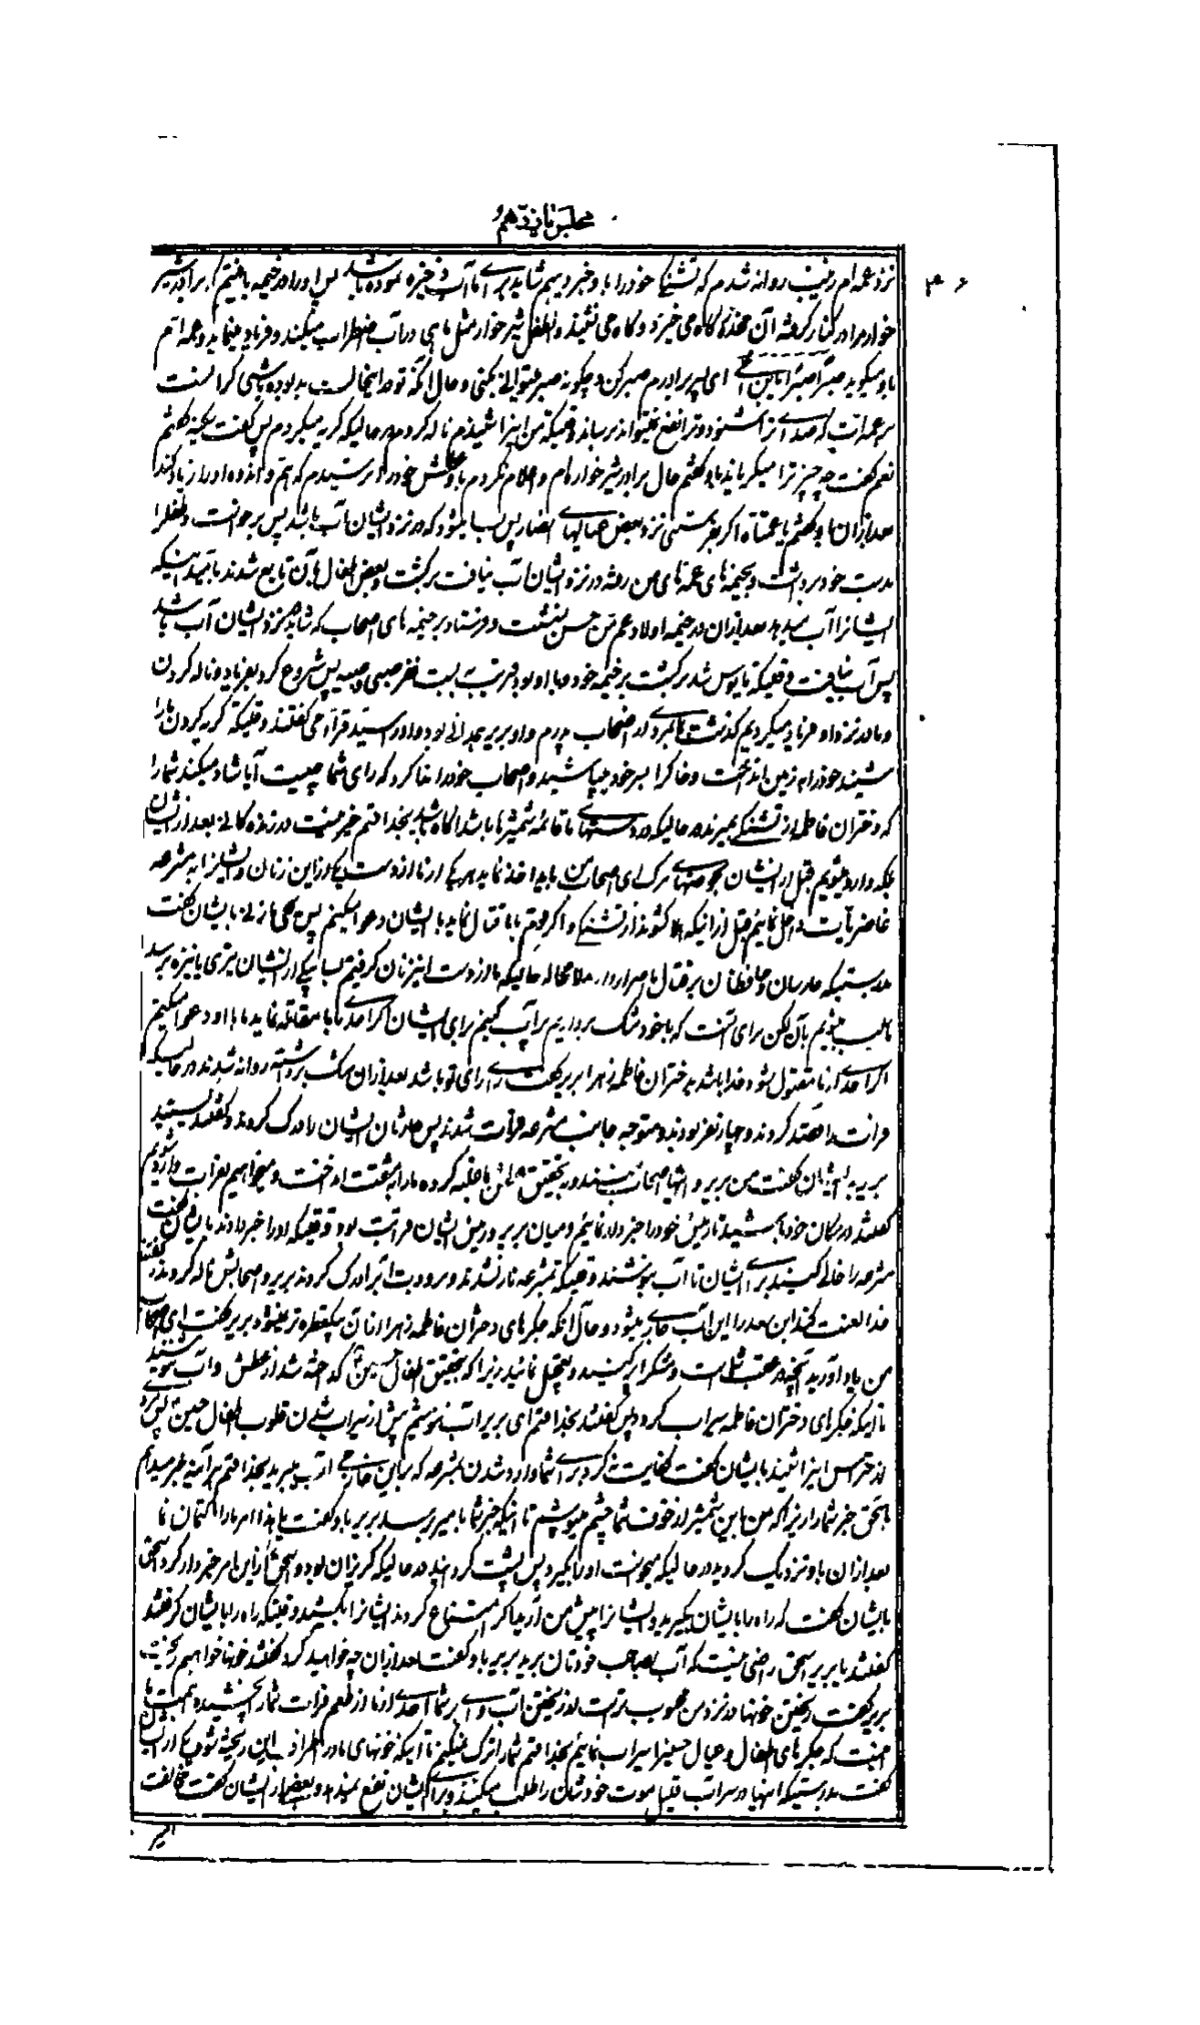 مجلس پانزدهم
۳۰۶
نزد عمه ام زینب روانه شدم که تشنگی خود را باو خبر دهیم شاید برای ما آب ذخیره نموده باشد پس او را در خیمه یافتیم که برادر شیر
خوار مرا در کنار گرفته آن مخدره گاه می خیزد و گاه می نشیند و طفل شیرخوار مثل ماهی در آب اضطراب میکند و فریاد مینماید و عمه ام
باو میگوید صبراً صبراً یابن اخی ای پسر برادرم صبر کن و چگونه صبر میتوانی بکنی و حال آنکه تو در اینحالت بد بوده باشی گرانست
بر عمه ات که صدای ترا بشنود و ترا نفع نتواند برساند وقتیکه من اینرا شنیدم ناله کردم در حالیکه گریه میکردم پس گفت سکینه گفتم
نعم گفت چه چیز ترا میگریاند باو گفتم حال برادر شیرخواره ام و اعلام نکردم باو عطش خود را ترسیدم که هم و اندوه او را زیاد کند
بعد از آن باو گفتم یا عمتاه اگر بفرستی نزد بعض عیالهای انصار پس بسا میشود که در نزد ایشان آب باشد پس برخواست و طفل را
بدست خود برداشت و بخیمه های عمه های من رفته در نزد ایشان آب نیافت برگشت و بعض اطفال بآن تابع شدند بامید اینکه
ایشانرا آب بدهد بعد از آن در خیمه اولاد عم من حسن بنشست و فرستاد بر خیمه های اصحاب که شاید در نزد ایشان آب باشد
پس آب نیافت وقتیکه مایوس شد برگشت بر خیمه خود و با او بود قریب به بیست نفر صبی و صبیه پس شروع کرد بفریاد و ناله کردن
و ما در نزد او فریاد میکردیم گذشت بما مردی از اصحاب پدرم و او بریر همدانی بود و او را سید قرآء می گفتند وقتیکه گریه کردن ما را
شنید خود را به زمین انداخت و خاک را بسر خود میپاشید و اصحاب خود را ندا کرد که رای شما چیست آیا شاد میکند شما را
که دختران فاطمه از تشنگی بمیرند در حالیکه در دستهای ما قائمه شمشیرها باشد آگاه باشید بخدا قسم خیر نیست در زندگانی بعد از ایشان
بلکه وارد میشویم قبل از ایشان بحوضهای مرگ ای اصحاب من باید اخذ نماید هر یکی از ما از دست یکی از این زنان و ایشانرا به مشرعه
غاضریات داخل نمائیم قبل از آنیکه هلاک شوند از تشنگی و اگر قوم با ما قتال نماید با ایشان دعوا میکنیم پس یحیی مازنی بایشان گفت
بدرستیکه حارسان و حافظان بر قتال ما اصرار دارند لا محاله حالیکه ما از دست این زنان گرفتیم بسا یکی از ایشان تیری یا نیزه برسد
ما سبب میشویم بآن لکن رای آنست که با خود مشک برداریم پر آب کنیم برای ایشان اگر احدی با ما مقاتله نماید ما با او دعوا میکنیم
اگر احدی از ما مقتول شود فدا باشد به دختران فاطمه زهرا بریر گفت رای رای تو باشد بعد از آن مشک برداشته روانه شدند در حالیکه
فرات را قصد کردند و چهار نفر بودند و متوجه جانب مشرعه فرات شدند پس حارثان ایشان را درک کردند و گفتند کیستید
بریر به ایشان گفت من بریر و اینها اصحاب منند و بتحقیق عطش ما غلبه کرده ما را به مشقت انداخت و میخواهیم بفرات وارد شویم
گفتند در مکان خود باشید تا رئیس خود را خبردار نمائیم و میان بریر و رئیس ایشان قرابت بود وقتیکه او را خبر دادند بایشان گفت
مشرعه را خالی کنید برای ایشان تا آب بنوشند وقتیکه بمشرعه نازل شدند و برودت آبرا درک کردند بریر و اصحابش ناله کردند و گفتند
خدا لعنت کند ابن سعد را این آب جاری میشود و حال آنکه جگرهای دختران فاطمه زهرا از آن یکقطره تر نمیشود بریر گفت ای اصحاب
من یاد آورید آنچه در عقب شما است و مشکرا پر کنید و تعجیل نمائید زیرا که بتحقیق اطفال حسین گداخته شد از عطش و آب ننوشید
تا اینکه جگرهای دختران فاطمه سیراب گردد پس گفتند بخدا قسم ای بریر آب ننوشیم پیش از سیراب شدن قلوب اطفال حسین پس مردی
از حرس اینرا شنید بایشان گفت کفایت نکرد برای شما وارد شدن بمشرعه که بر این خارجی آب میبرید بخدا قسم هر آینه خبر میدهم
باسحق خبر شما را زیرا که من باین شمشیر از خوف شما چشم میپوشم تا اینکه خبر شما بامیر برسد بریر باو گفت یا هذا امر ما را کتمان نما
بعد از آن باو نزدیک گردید در حالیکه میخواست او را بگیرد پس پشت گردانید در حالیکه گریزان بود و اسحق را از این امر خبردار کرد اسحق
بایشان گفت که راه را بایشان بگیرید و ایشانرا پیش من آرید اگر امتناع کردند ایشانرا بکشید وقتیکه راه را بایشان گرفتند
گفتند یا بریر اسحق راضی نیست که آب بصاحب خودتان برید بریر باو گفت بعد از آن چه خواهید کرد گفتند خونها خواهیم ریخت
بریر گفت ریختن خونها در نزد من محبوب تر است از ریختن آب وای بر شما احدی از ما از طعم فرات شما نچشیده همت ما
اینست که جگرهای اطفال و عیال حسین را سیراب نمائیم بخدا قسم شما را ترک نمیکنیم تا اینکه خونهای ما در اطراف این ریخته شود یکی از ایشان
گفت بدرستیکه اینها در سر آب قلیل موت خودشان را طلب میکنند و برای ایشان نفع نمیدهد و بعض از ایشان گفت مخالفت
امیر